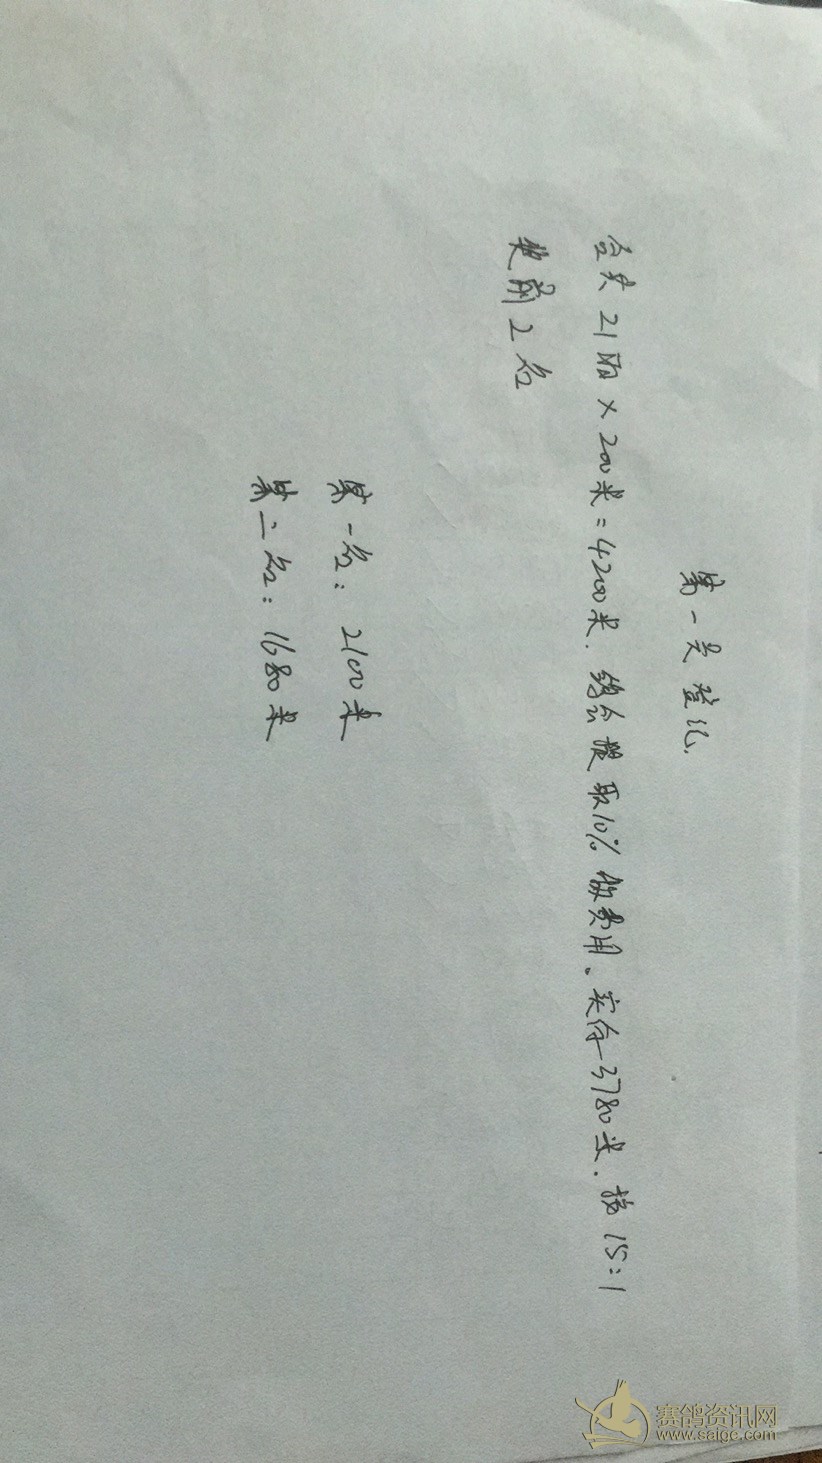 第一关登记.
合共21羽×200米=4200米.鸽会提取10%做费用。实分3780米.按15:1
奖前2名
第一名:2100米
第二名:1680米
赛鸽资讯网
www.saige.com